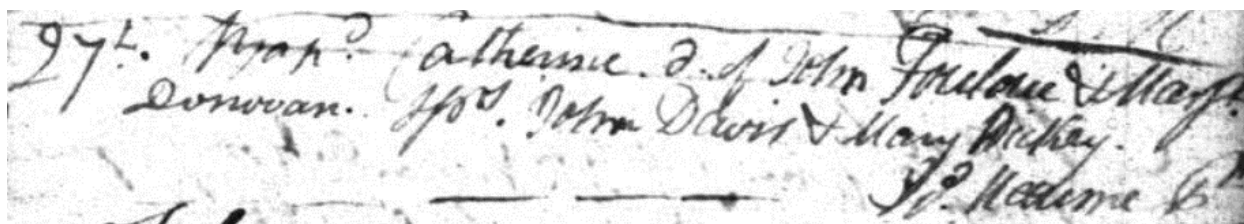 27th. Bapd. Catherine. d. of John Foulow & Margt.
Donovan. Sps. John Davis & Mary Hickey.